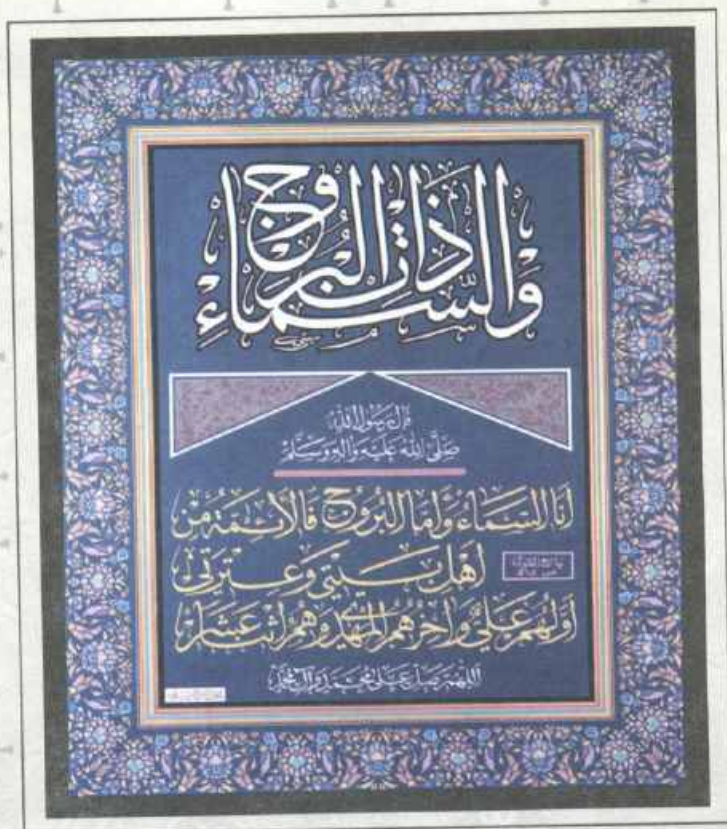 وَالسَّمَاءِ ذَاتِ الْبُرُوجِ
قال رسول الله
صَلَّى اللهُ عَلَيْهِ وَآلِهِ وَسَلَّمَ
أَنَا السَّمَاءُ وَأَمَّا الْبُرُوجُ فَالْأَئِمَّةُ مِنْ
أَهْلِ بَيْتِي وَعِتْرَتِي
أَوَّلُهُمْ عَلِيٌّ وَآخِرُهُمُ الْمَهْدِيُّ وَهُمْ اثْنَا عَشَرَ
اللهم صل على محمد وآل محمد